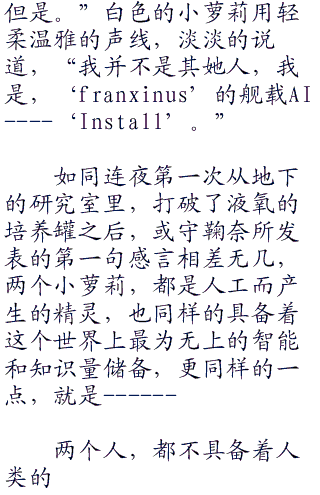 但是。”白色的小萝莉用轻
柔温雅的声线，淡淡的说
道，“我并不是其她人，我
是，‘franxinus’的舰载AI
----‘Install’。”
如同连夜第一次从地下
的研究室里，打破了液氧的
培养罐之后，或守鞠奈所发
表的第一句感言相差无几，
两个小萝莉，都是人工而产
生的精灵，也同样的具备着
这个世界上最为无上的智能
和知识量储备，更同样的一
点，就是------
两个人，都不具备着人
类的